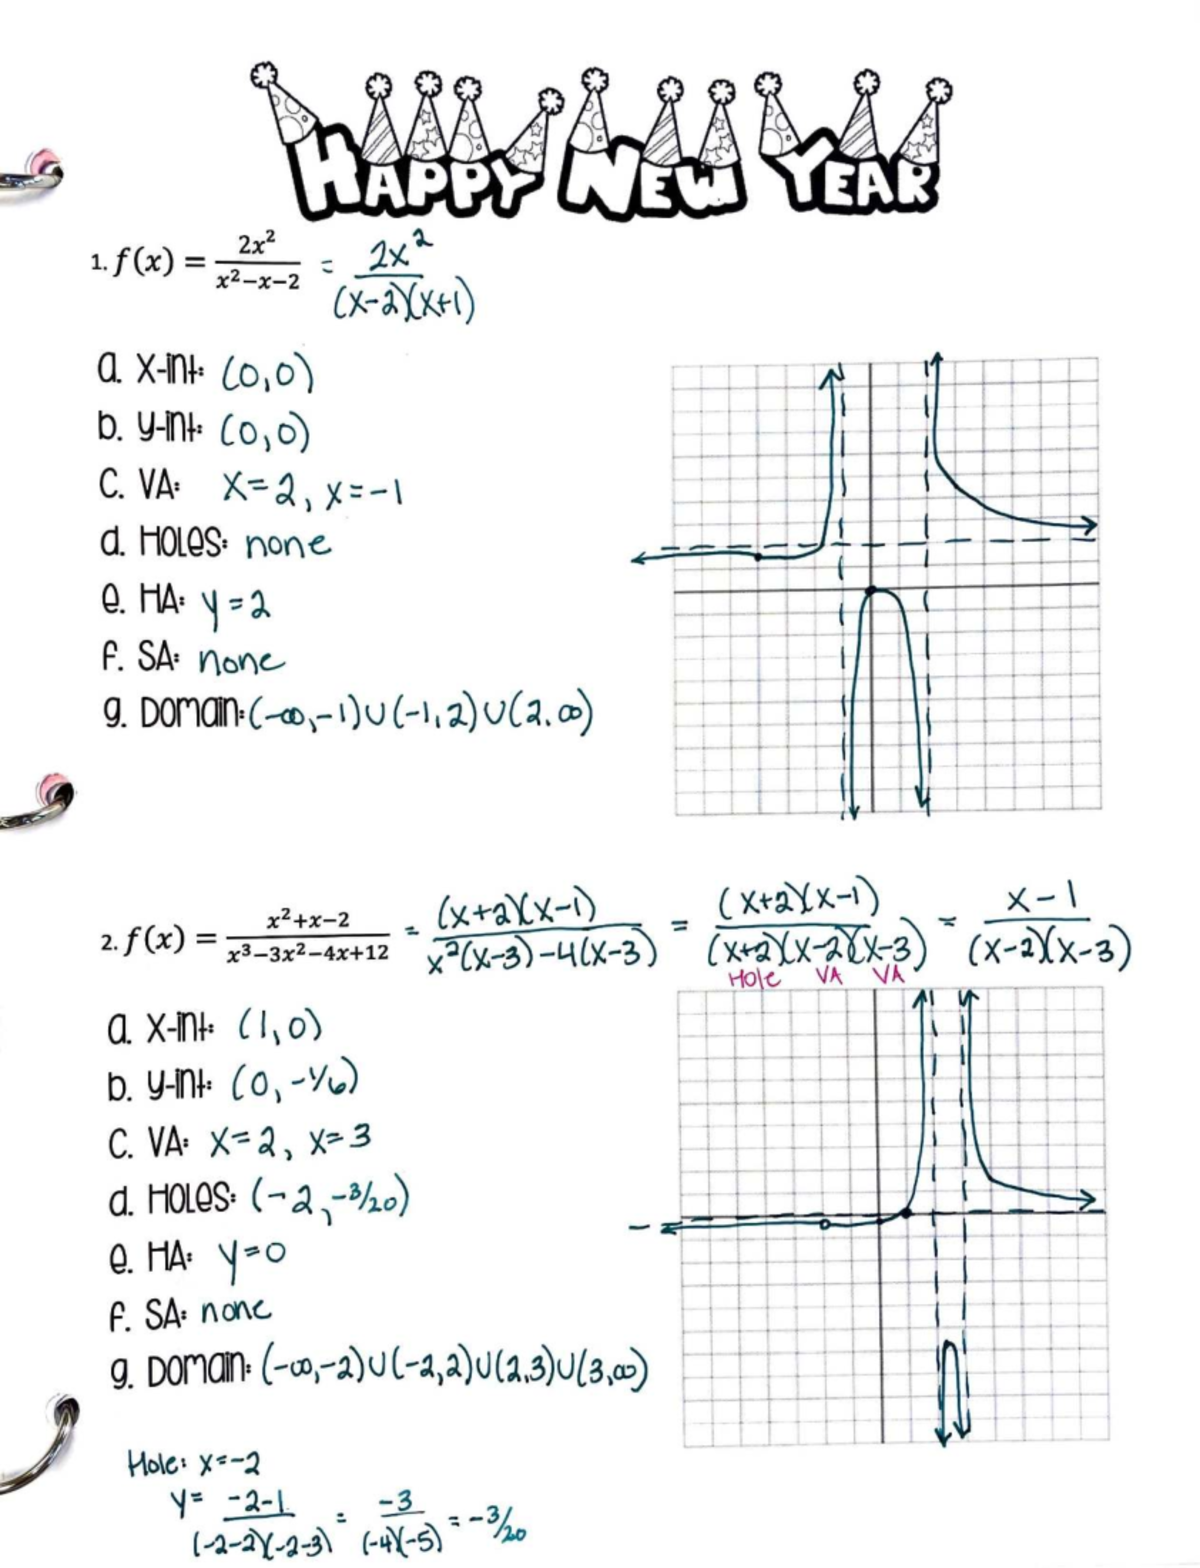 HAPPY NEW YEAR
1. f(x) = 2x²/(x²−x−2) = 2x²/((x-2)(x+1))
a. x-int: (0,0)
b. y-int: (0,0)
c. VA: x=2, x=-1
d. Holes: none
e. HA: y=2
f. SA: none
g. Domain: (-∞,-1)∪(-1,2)∪(2,∞)
2. f(x) = (x²+x−2)/(x³−3x²−4x+12) = ((x+2)(x-1))/(x²(x-3)-4(x-3)) = ((x+2)(x-1))/((x+2)(x-2)(x-3)) = (x-1)/((x-2)(x-3))
Hole VA VA
a. x-int: (1,0)
b. y-int: (0,-1/6)
c. VA: x=2, x=3
d. Holes: (-2,-3/20)
e. HA: y=0
f. SA: none
g. Domain: (-∞,-2)∪(-2,2)∪(2,3)∪(3,∞)
Hole: x=-2
y= (-2-1)/((-2-2)(-2-3)) = -3/((-4)(-5)) = -3/20